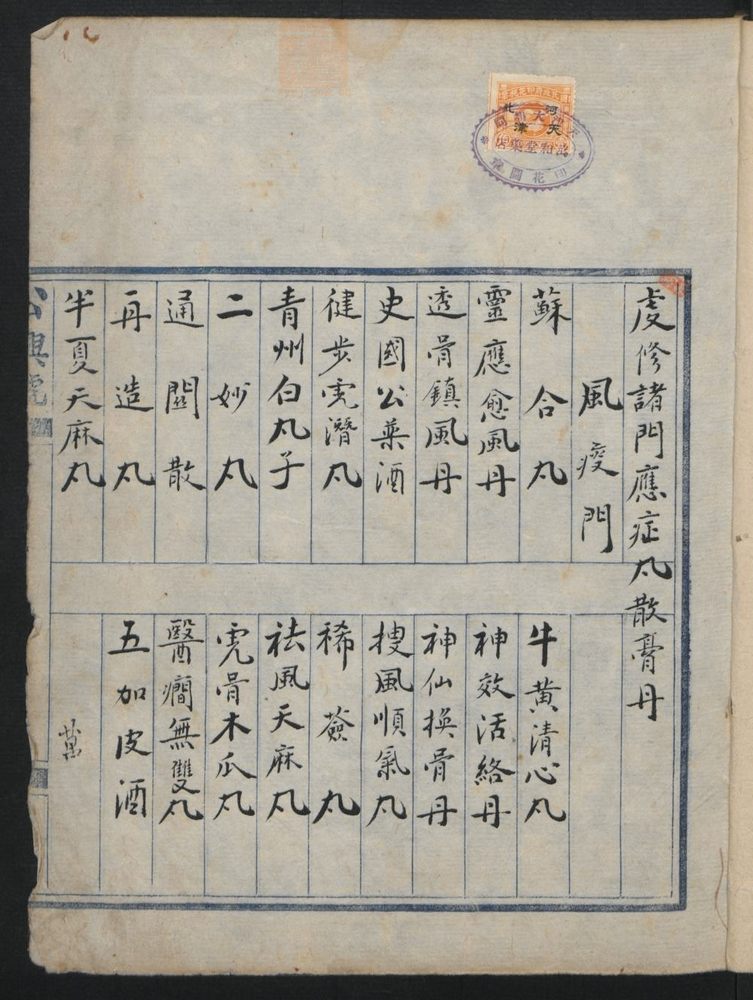 虔修諸門應症丸散膏丹
風痰門
蘇合丸
牛黃清心丸
靈應愈風丹
神效活絡丹
透骨鎮風丹
神仙換骨丹
史國公藥酒
搜風順氣丸
健步虎潛丸
稀薟丸
青州白丸子
祛風天麻丸
二妙丸
虎骨木瓜丸
通關散
醫癎無雙丸
再造丸
五加皮酒
半夏天麻丸
萬
河北
天津
印花